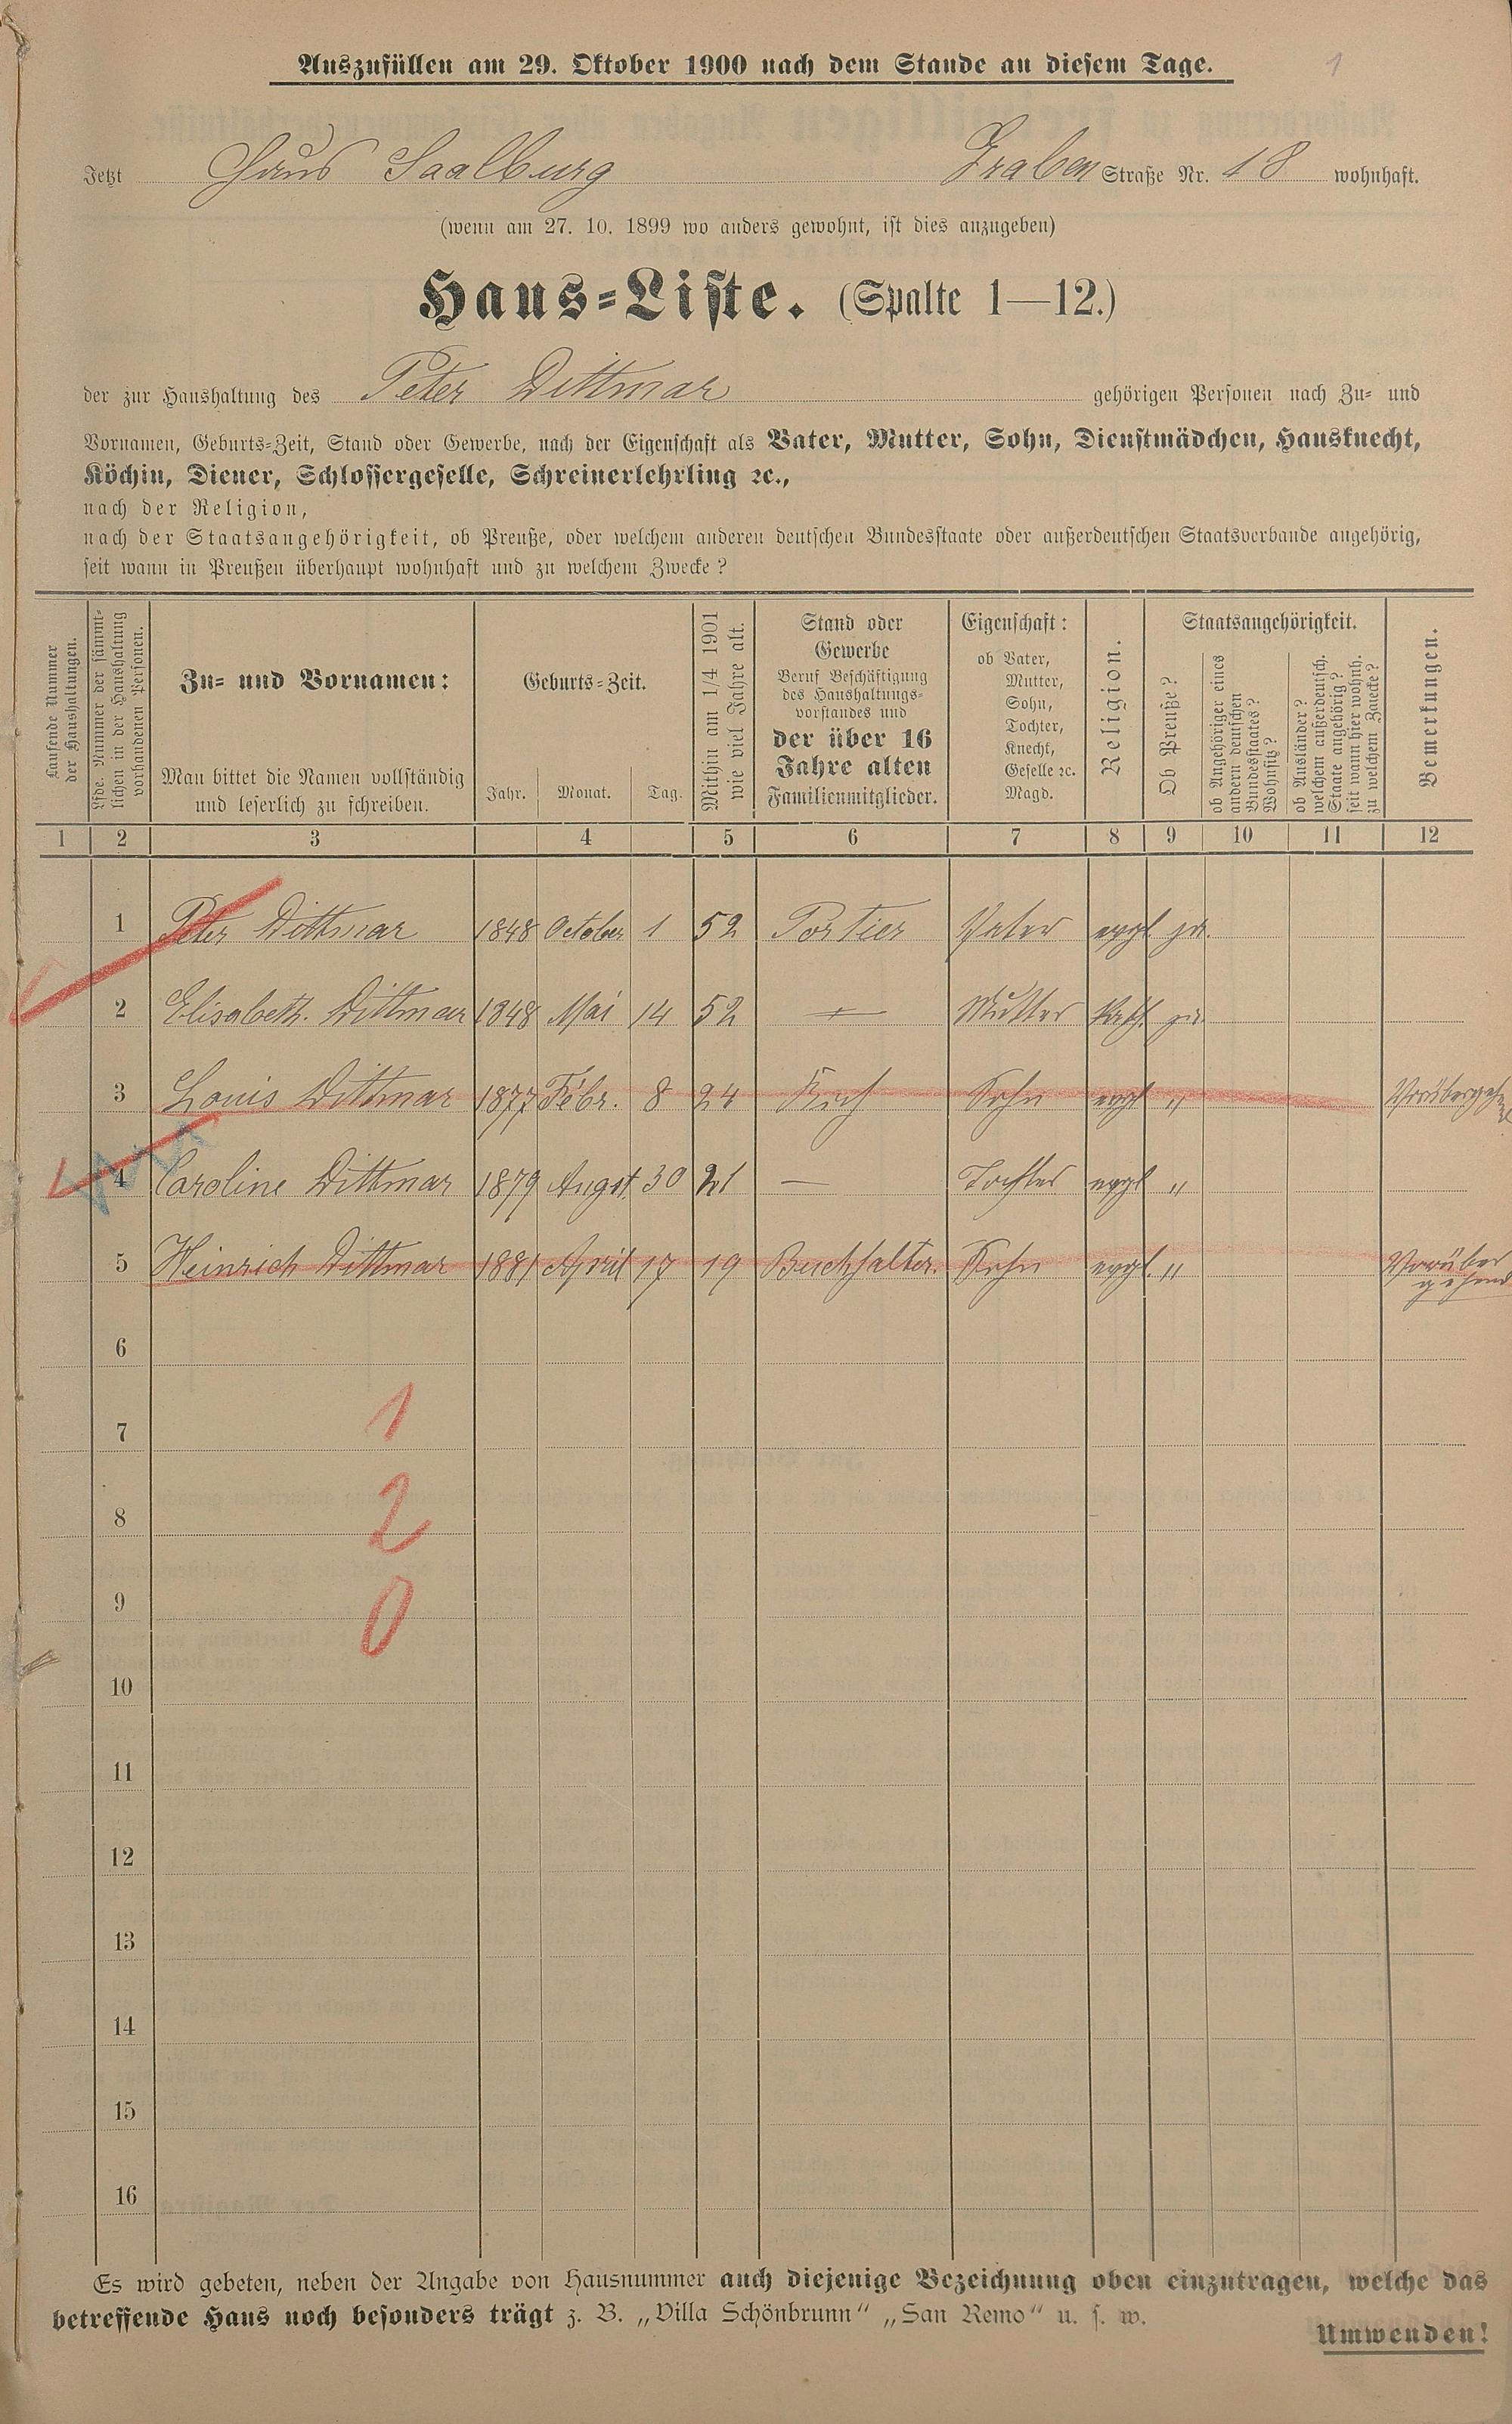 Auszufüllen am 29. Oktober 1900 nach dem Stande an diesem Tage.
1
Jetzt Haus Saalburg Graben Straße Nr. 18 wohnhaft.
(wenn am 27. 10. 1899 wo anders gewohnt, ist dies anzugeben)
Haus-Liste. (Spalte 1—12.)
der zur Haushaltung des Peter Dittmar gehörigen Personen nach Zu- und
Vornamen, Geburts-Zeit, Stand oder Gewerbe, nach der Eigenschaft als Vater, Mutter, Sohn, Dienstmädchen, Hausknecht,
Köchin, Diener, Schlossergeselle, Schreinerlehrling ꝛc.,
nach der Religion,
nach der Staatsangehörigkeit, ob Preuße, oder welchem anderen deutschen Bundesstaate oder außerdeutschen Staatsverbande angehörig,
seit wann in Preußen überhaupt wohnhaft und zu welchem Zwecke?
Laufende Nummer
der Haushaltungen.
Lfde. Nummer der sämmt-
lichen in der Haushaltung
vorhandenen Personen.
Zu- und Vornamen:
Man bittet die Namen vollständig
und leserlich zu schreiben.
Geburts-Zeit.
Jahr. Monat. Tag.
Mithin am 1/4 1901
wie viel Jahre alt.
Stand oder
Gewerbe
Beruf Beschäftigung
des Haushaltungs-
vorstandes und
der über 16
Jahre alten
Familienmitglieder.
Eigenschaft:
ob Vater,
Mutter,
Sohn,
Tochter,
Knecht,
Geselle ꝛc.
Magd.
Religion.
Staatsangehörigkeit.
Ob Preuße?
ob Angehöriger eines
andern deutschen
Bundesstaates?
Wohnsitz?
ob Ausländer?
welchem außerdeutsch.
Staate angehörig?
seit wann hier wohnh.
zu welchem Zwecke?
Bemerkungen.
1 2 3 4 5 6 7 8 9 10 11 12
1 Peter Dittmar 1848 October 1 52 Portier Vater evgl. ja.
2 Elisabeth. Dittmar 1848 Mai 14 52 — Mutter Kath. ja.
3 Louis Dittmar 1877 Febr. 8 24 Koch Sohn evgl. " Vorübergehend
4 Caroline Dittmar 1879 Augst. 30 21 — Tochter evgl. "
5 Heinrich Dittmar 1881 April 17 19 Buchhalter. Sohn evgl. " Vorüber
gehend
6
7 1
8 2
9 0
10
11
12
13
14
15
16
Es wird gebeten, neben der Angabe von Hausnummer auch diejenige Bezeichnung oben einzutragen, welche das
betreffende Haus noch besonders trägt z. B. „Villa Schönbrunn" „San Remo" u. s. w.
Umwenden!